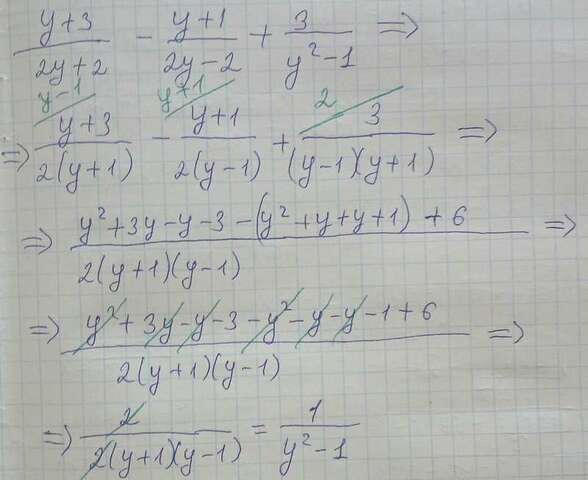 (y+3)/(2y+2) − (y+1)/(2y−2) + 3/(y²−1) ⇒
y−1 y+1 2
⇒ (y+3)/(2(y+1)) − (y+1)/(2(y−1)) + 3/((y−1)(y+1)) ⇒
⇒ (y²+3y−y−3−(y²+y+y+1)+6)/(2(y+1)(y−1)) ⇒
⇒ (y²+3y−y−3−y²−y−y−1+6)/(2(y+1)(y−1)) ⇒
⇒ 2/(2(y+1)(y−1)) = 1/(y²−1)